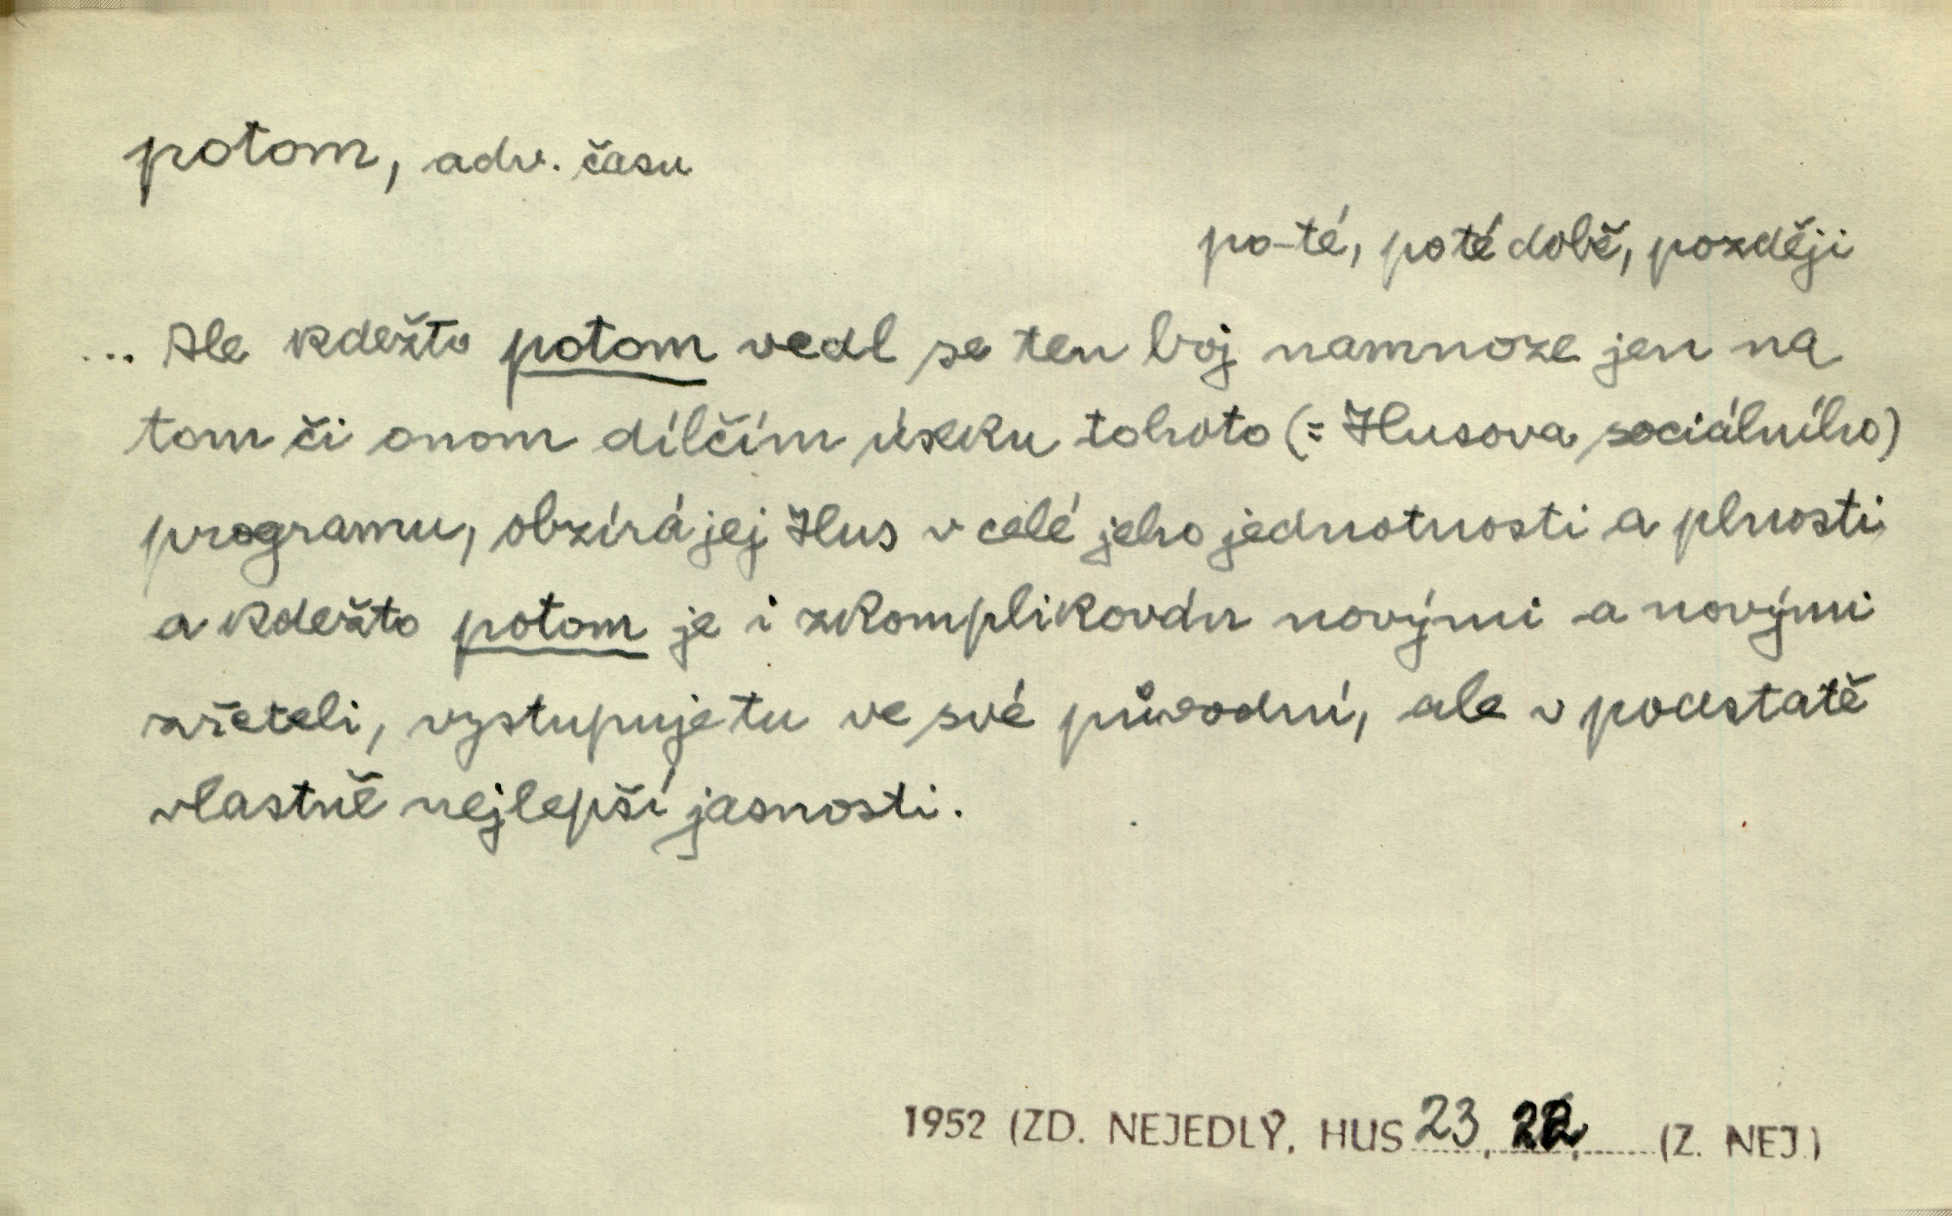 potom, adv. času
po-té, po té době, později
... Ale kdežto potom vedl se ten boj namnoze jen na
tom či onom dílčím úseku tohoto (= Husova sociálního)
programu, obzírá jej Hus v celé jeho jednotnosti a plnosti
a kdežto potom je i zkomplikován novými a novými
zřeteli, vystupuje tu ve své původní, ale v podstatě
vlastně nejlepší jasnosti.
1952 (ZD. NEJEDLÝ, HUS 23, 22, (Z. NEJ.)